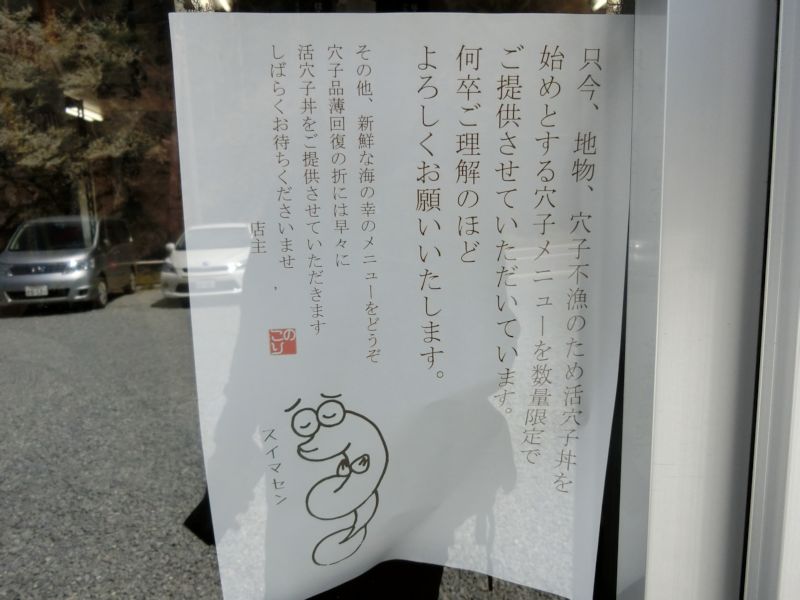 只今、地物、穴子不漁のため活穴子丼を
始めとする穴子メニューを数量限定で
ご提供させていただいています。
何卒ご理解のほど
よろしくお願いいたします。
その他、新鮮な海の幸のメニューをどうぞ
穴子品薄回復の折には早々に
活穴子丼をご提供させていただきます
しばらくお待ちくださいませ
店主
のり
こ
スイマセン